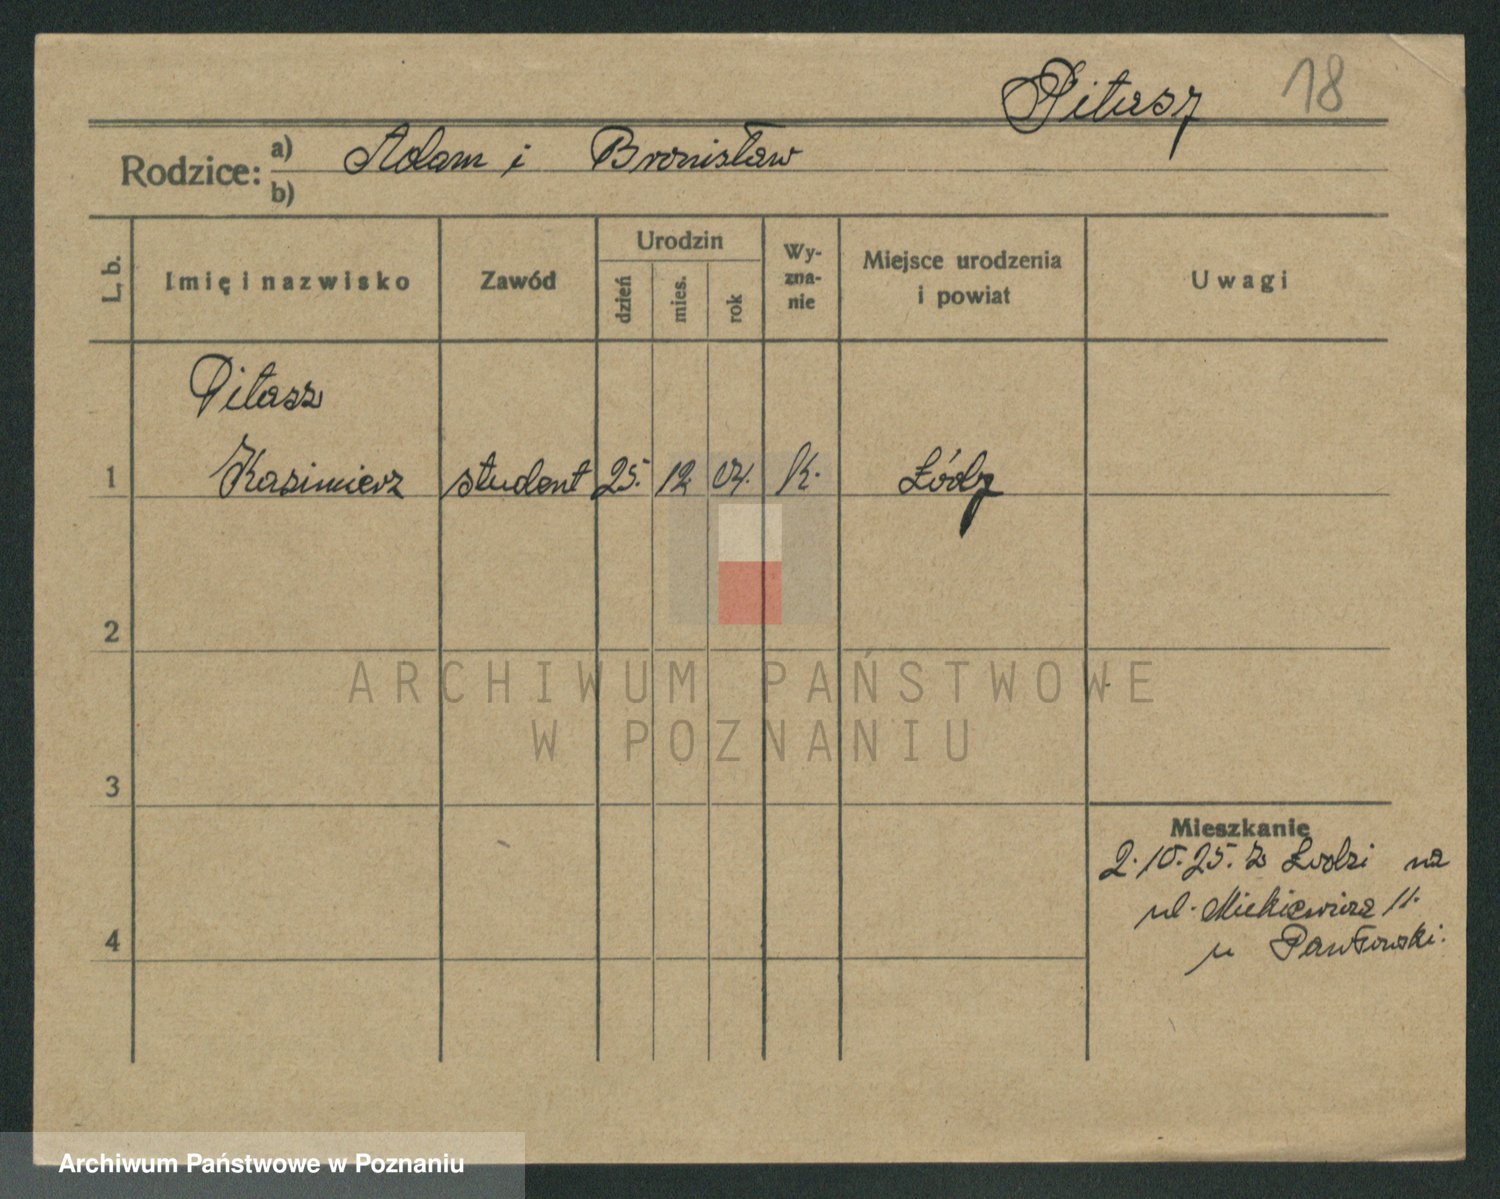 Pitasz 18
Rodzice: a) Adam i Bronisław
b)
L. b. Imię i nazwisko Zawód Urodzin dzień mies. rok Wyzna-nie Miejsce urodzenia i powiat Uwagi
Pitasz
1 Kazimierz student 25. 12 04. K. Łódz
2
ARCHIWUM PAŃSTWOWE
W POZNANIU
3
Mieszkanie
2.10.25. z Łodzi na
ul. Mickiewicza 11.
4
u Pawłowski.
Archiwum Państwowe w Poznaniu